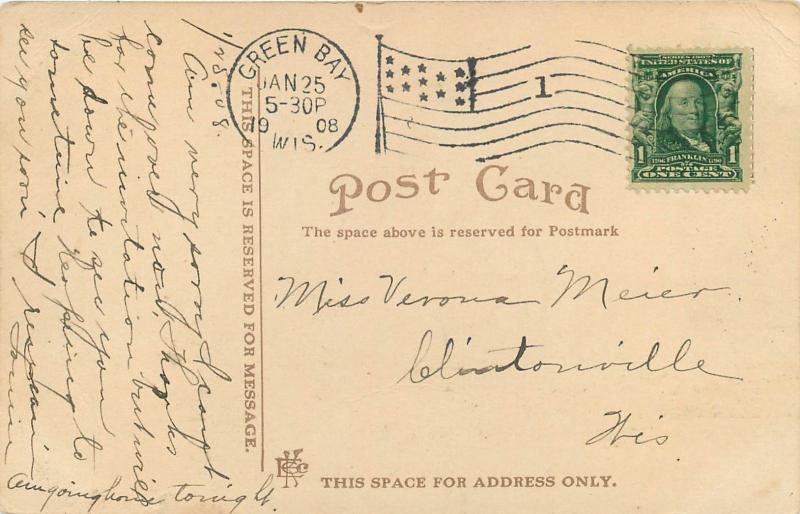 1/25-08.
Am very sorry I can't
come over now, thanks
for the invitation but will
be down to see you
sometime. Hopeing to
see you soon I remain
Am going home tonight.
GREEN BAY
JAN 25
5-30P
19 08
WIS.
1
SERIES 1902
UNITED STATES OF
AMERICA
1706 FRANKLIN 1790
1 1
POSTAGE
ONE CENT
Post Card
The space above is reserved for Postmark
THIS SPACE IS RESERVED FOR MESSAGE.
Miss Verona Meier.
Clintonville
Wis
THIS SPACE FOR ADDRESS ONLY.